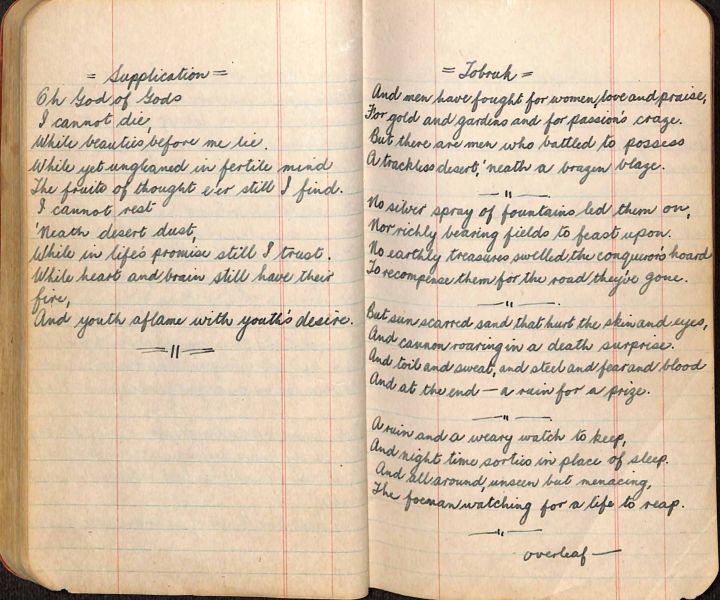 = Supplication =
Oh God of Gods
I cannot die,
While beauties before me lie.
While yet ungleaned in fertile mind
The fruits of thought e'er still I find.
I cannot rest
'Neath desert dust,
While in life's promise still I trust.
While heart and brain still have their
fire,
And youth aflame with youth's desire.
= Tobruk =
And men have fought for women, love and praise,
For gold and gardens and for passion's craze.
But there are men who battled to possess
A trackless desert, 'neath a brazen blaze.
No silver spray of fountains led them on,
Nor richly bearing fields to feast upon.
No earthly treasures swelled the conqueror's hoard
To recompense them for the road they've gone.
But sun scarred sand that hurt the skin and eyes,
And cannon roaring in a death surprise.
And toil and sweat, and steel and fear and blood
And at the end — a ruin for a prize.
A ruin and a weary watch to keep,
And night time sorties in place of sleep.
And all around, unseen but menacing,
The foeman watching for a life to reap.
overleaf —